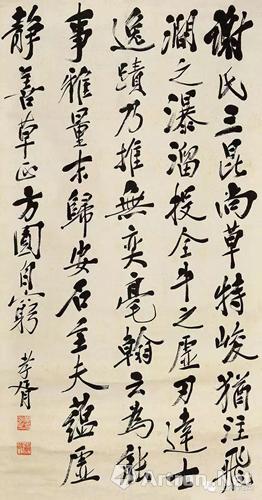 謝氏三昆尚草特峻猶注飛
澗之瀑溜投全牛之虛刃達士
逸蹟乃推無奕毫翰云為能
事雅量末歸安石至夫蘊虛
靜善草正方圓自窮
孝胥